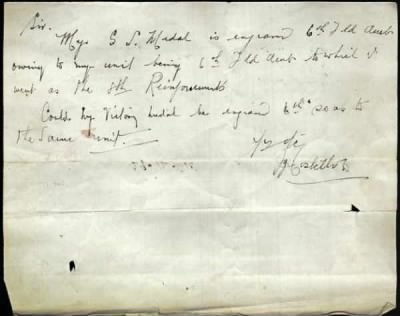 Sir.
My G S. Medal is engraved 6th Fld Amb
owing to my unit being 6th Fld Amb to which I
went as the 8th Reinforcements
Could my Victory medal be engraved 6th so as to
the same unit.